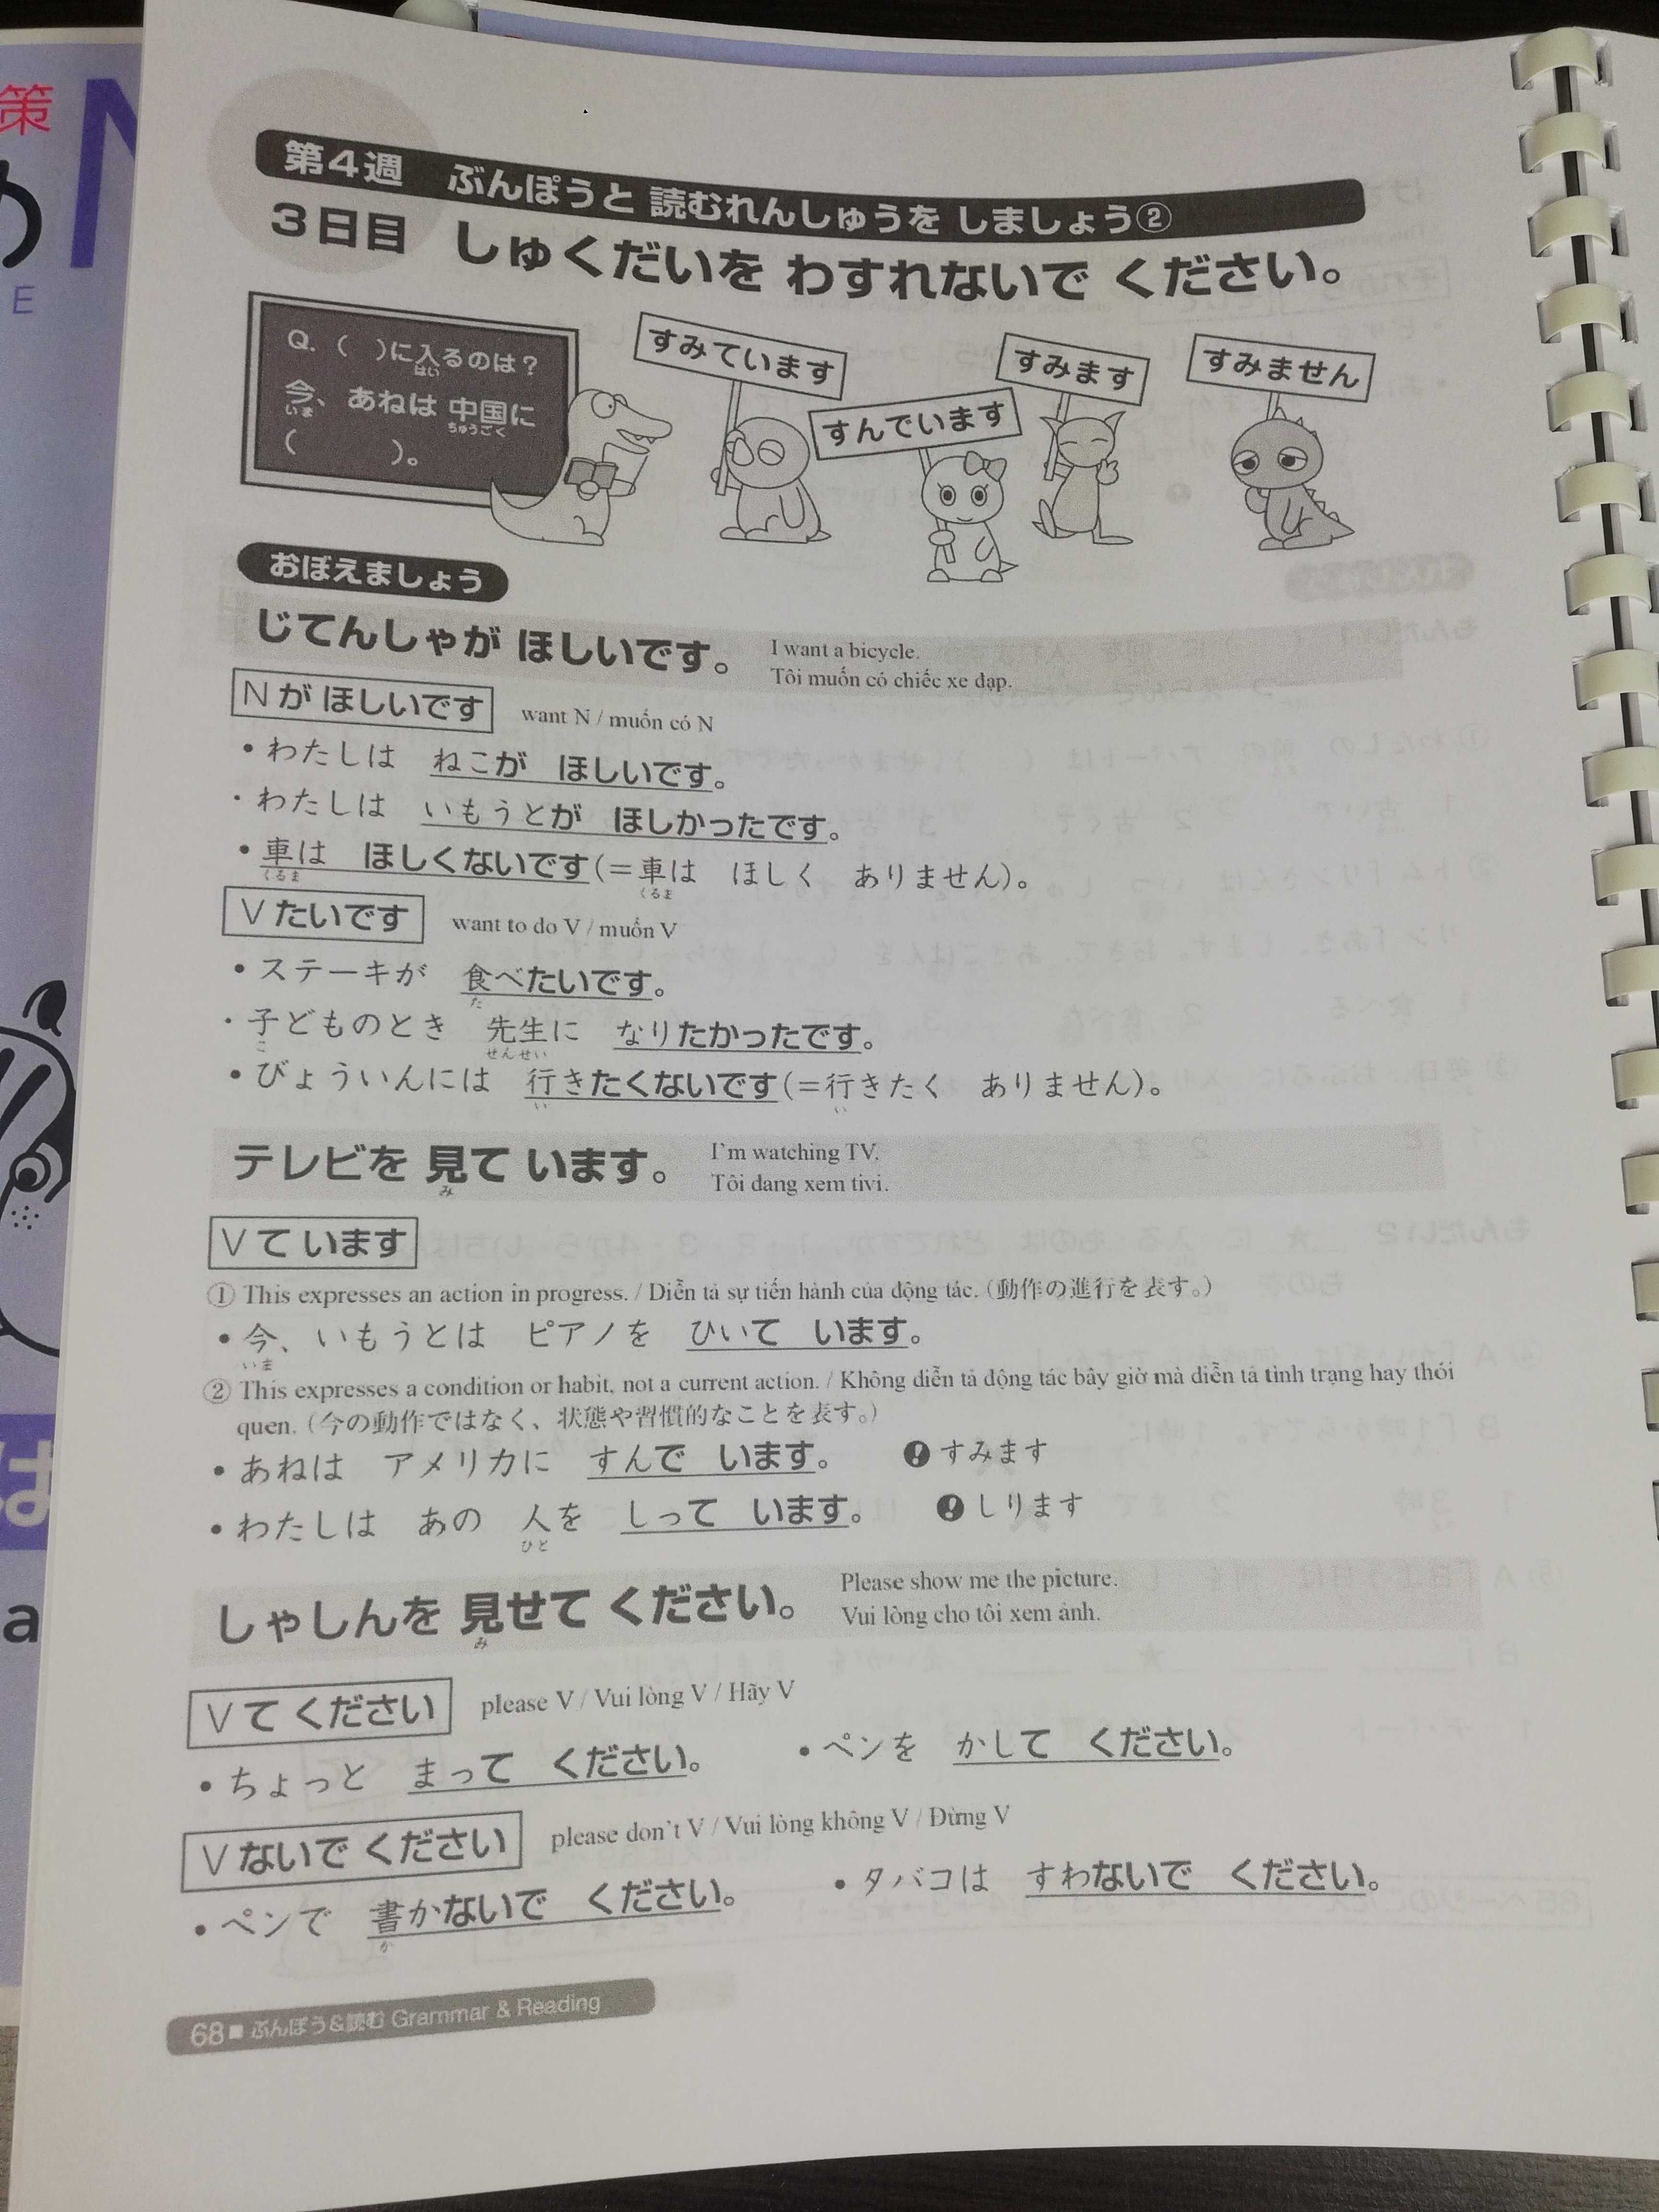 策
め N
E
は
a
第4週 ぶんぽうと 読むれんしゅうを しましょう②
3日目 しゅくだいを わすれないで ください。
Q. ( )に入るのは？
はい
今、あねは 中国に
いま ちゅうごく
( )。
すみています
すんでいます
すみます
すみません
おぼえましょう
じてんしゃが ほしいです。 I want a bicycle.
Tôi muốn có chiếc xe đạp.
N が ほしいです want N / muốn có N
• わたしは ねこが ほしいです。
・わたしは いもうとが ほしかったです。
• 車は ほしくないです(＝車は ほしく ありません)。
くるま くるま
V たいです want to do V / muốn V
• ステーキが 食べたいです。
た
・子どものとき 先生に なりたかったです。
こ せんせい
• びょういんには 行きたくないです(＝行きたく ありません)。
い い
テレビを 見て います。 I'm watching TV.
み Tôi đang xem tivi.
V て います
① This expresses an action in progress. / Diễn tả sự tiến hành của động tác. (動作の進行を表す。)
• 今、いもうとは ピアノを ひいて います。
いま
② This expresses a condition or habit, not a current action. / Không diễn tả động tác bây giờ mà diễn tả tình trạng hay thói
quen. (今の動作ではなく、状態や習慣的なことを表す。)
• あねは アメリカに すんで います。 ! すみます
• わたしは あの 人を しって います。 ! しります
ひと
しゃしんを 見せて ください。 Please show me the picture.
み Vui lòng cho tôi xem ảnh.
V て ください please V / Vui lòng V / Hãy V
• ちょっと まって ください。 • ペンを かして ください。
V ないで ください please don't V / Vui lòng không V / Đừng V
• ペンで 書かないで ください。 • タバコは すわないで ください。
か
68 ■ ぶんぽう&読む Grammar & Reading